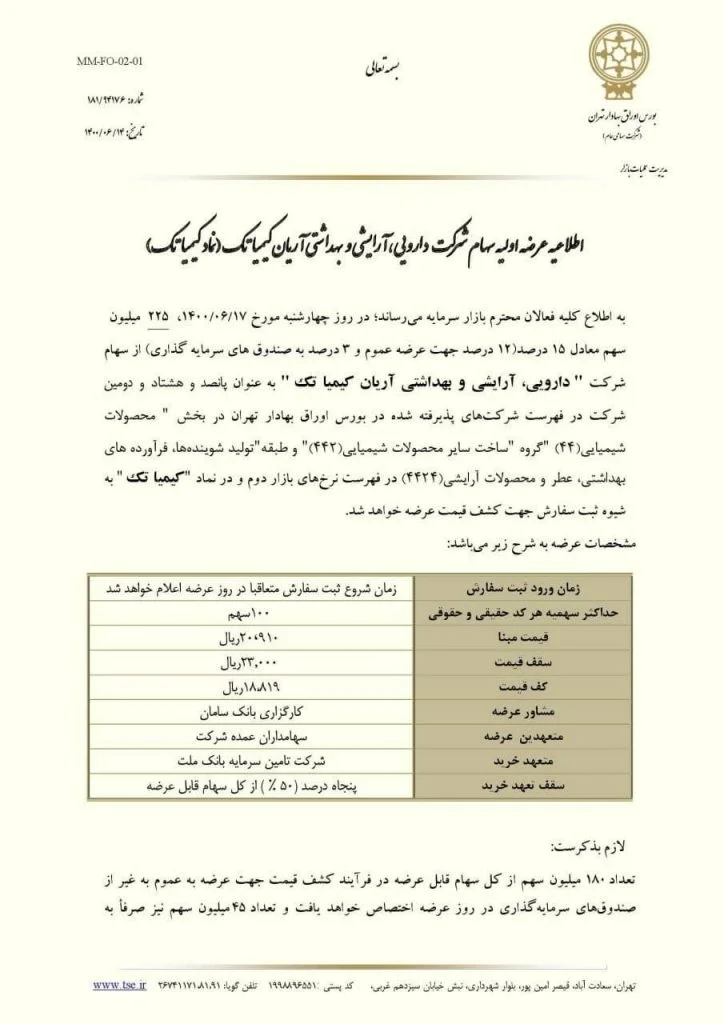 MM-FO-02-01
بسمه تعالی
شماره: ۱۸۱/۹۴۱۷۶
تاریخ: ۱۴۰۰/۰۶/۱۴
بورس اوراق بهادار تهران
(شرکت سهامی عام)
مدیریت عملیات بازار
اطلاعیه عرضه اولیه سهام شرکت دارویی، آرایشی و بهداشتی آریان کیمیا تک (نماد کیمیاتک)
به اطلاع کلیه فعالان محترم بازار سرمایه می‌رساند؛ در روز چهارشنبه مورخ ۱۴۰۰/۰۶/۱۷، ۲۲۵ میلیون
سهم معادل ۱۵ درصد(۱۲ درصد جهت عرضه عموم و ۳ درصد به صندوق های سرمایه گذاری) از سهام
شرکت " دارویی، آرایشی و بهداشتی آریان کیمیا تک " به عنوان پانصد و هشتاد و دومین
شرکت در فهرست شرکت‌های پذیرفته شده در بورس اوراق بهادار تهران در بخش " محصولات
شیمیایی(۴۴) "گروه "ساخت سایر محصولات شیمیایی(۴۴۲)" و طبقه"تولید شوینده‌ها، فرآورده های
بهداشتی، عطر و محصولات آرایشی(۴۴۲۴) در فهرست نرخ‌های بازار دوم و در نماد "کیمیا تک " به
شیوه ثبت سفارش جهت کشف قیمت عرضه خواهد شد.
مشخصات عرضه به شرح زیر می‌باشد:
زمان ورود ثبت سفارش زمان شروع ثبت سفارش متعاقبا در روز عرضه اعلام خواهد شد
حداکثر سهمیه هر کد حقیقی و حقوقی ۱۰۰سهم
قیمت مبنا ۲۰،۹۱۰ریال
سقف قیمت ۲۳,۰۰۰ریال
کف قیمت ۱۸،۸۱۹ریال
مشاور عرضه کارگزاری بانک سامان
متعهدین عرضه سهامداران عمده شرکت
متعهد خرید شرکت تامین سرمایه بانک ملت
سقف تعهد خرید پنجاه درصد (۵۰ ٪ ) از کل سهام قابل عرضه
لازم بذکرست:
تعداد ۱۸۰ میلیون سهم از کل سهام قابل عرضه در فرآیند کشف قیمت جهت عرضه به عموم به غیر از
صندوق‌های سرمایه‌گذاری در روز عرضه اختصاص خواهد یافت و تعداد ۴۵میلیون سهم نیز صرفاً به
تهران، سعادت آباد، قیصر امین پور، بلوار شهرداری، نبش خیابان سیزدهم غربی، کد پستی :۱۹۹۸۸۹۶۵۵۱ تلفن گویا: ۲۶۷۴۱۱۷۱،۸۱،۹۱ www.tse.ir